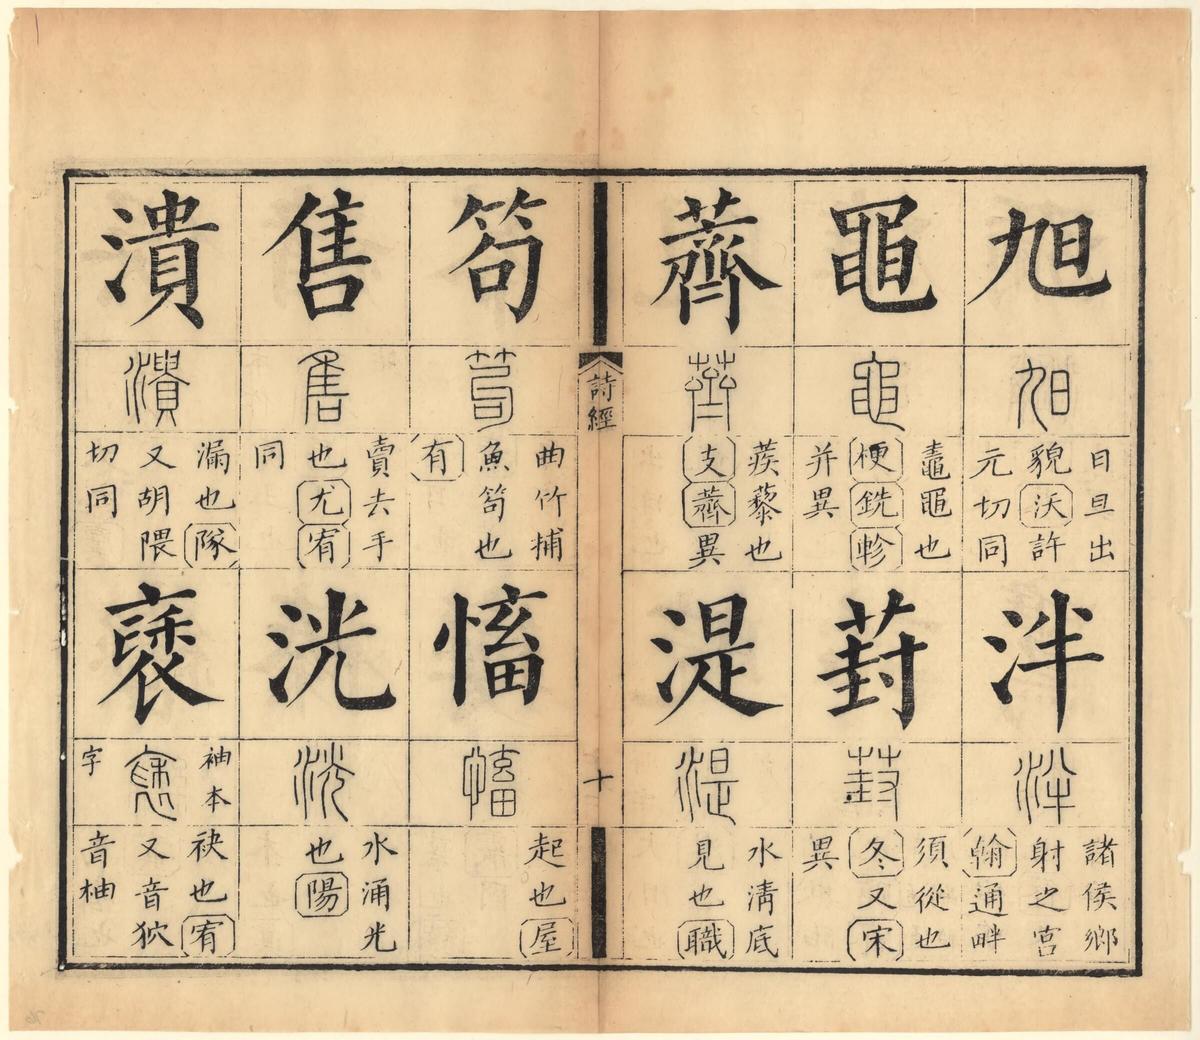 旭
旭
日旦出
貌沃許
元切同
泮
泮
諸侯鄉
射之宮
翰通畔
黽
黽
鼃黽也
梗銑軫
并異
葑
葑
須從也
冬又宋
異
薺
薺
蒺藜也
支薺異
湜
湜
水清底
見也職
詩經
十
笱
笱
曲竹捕
魚笱也
有
慉
慉
起也屋
售
售
賣去手
也尤宥
同
洸
洸
水涌光
也陽
潰
潰
漏也隊
又胡隈
切同
褎
袖本
褎
字
袂也宥
又音狖
音柚